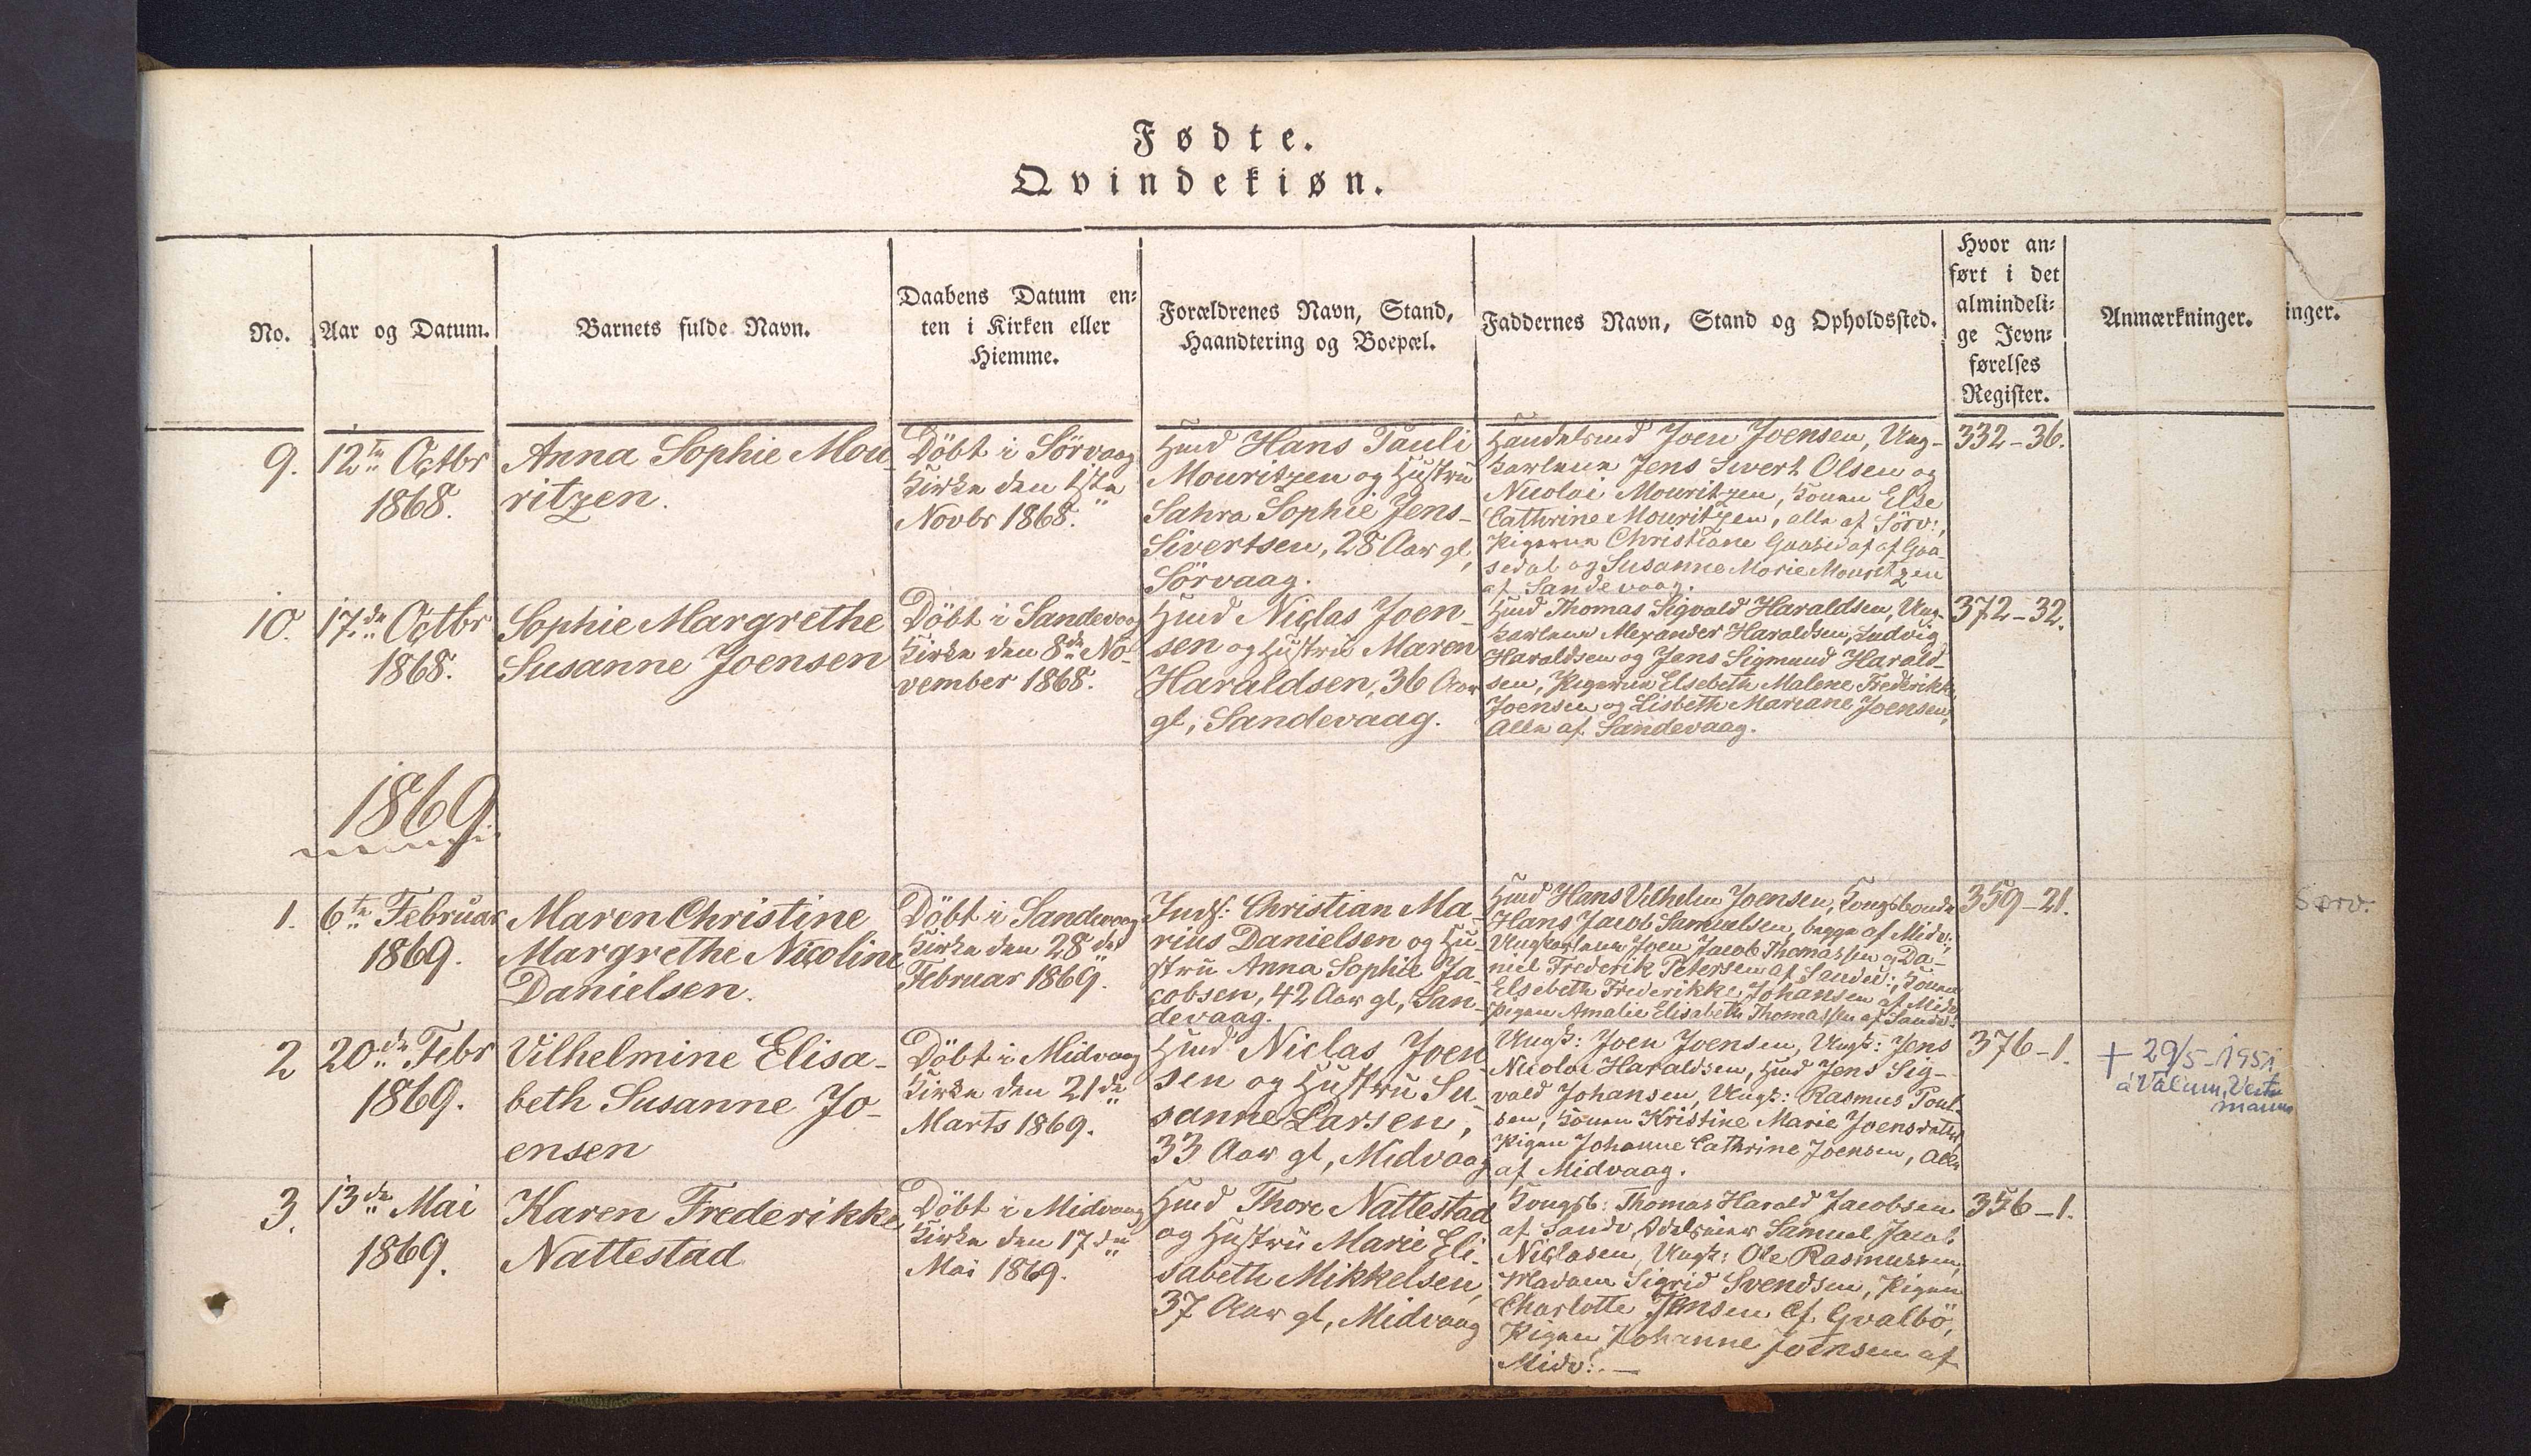 Fødte.
Qvindekiøn.
No.
Aar og Datum.
Barnets fulde Navn.
Daabens Datum en=
ten i Kirken eller
Hiemme.
Forældrenes Navn, Stand,
Haandtering og Boepæl.
Faddernes Navn, Stand og Opholdssted.
Hvor an=
ført i det
almindeli=
ge Jevn=
førelses
Register.
Anmærkninger.
inger.
9.
12te Octbr
1868.
Anna Sophie Mou-
ritzen.
Döbt i Sörvaag
Kirke den 1ste
Novbr 1868.
Hmd Hans Pauli
Mouritzen og Hustru
Sahra Sophie Jens-
Sivertsen, 28 Aar gl,
Sörvaag.
Joen Joensen, Ung-
karlene Jens Sivert Olsen og
Nicolai Mouritzen, Konen Else
Cathrine Mouritzen, alle af Sörv:,
Pigerne Christiane Gaasedal af Gaa-
sedal og Susanne Marie Mouritzen
af Sandevaag.
332-36.
10.
17de Octbr
1868.
Sophie Margrethe
Susanne Joensen
Döbt i Sandevaag
Kirke den 8de No-
vember 1868.
Hmd Niclas Joen-
sen og Hustru Maren
Haraldsen, 36 Aar
gl, Sandevaag.
Hmd Thomas Sigvald Haraldsen, Ung-
karlene Alexander Haraldsen, Ludvig
Haraldsen og Jens Sigmund Harald-
sen, Pigerne Elsebeth Malene Frederikke
Joensen og Lisbeth Mariane Joensen,
Alle af Sandevaag.
372-32.
1869
1.
6te Februar
1869.
Maren Christine
Margrethe Nicoline
Danielsen.
Döbt i Sandevaag
Kirke den 28de
Februar 1869.
Indf: Christian Ma-
rius Danielsen og Hu-
stru Anna Sophie Ja-
cobsen, 42 Aar gl, San-
devaag.
Hmd Hans Vilhelm Joensen, Kongsbonde
Hans Jacob Samuelsen, begge af Midv:,
Ungkarlene Joen Jacob Thomassen og Da-
niel Frederik Petersen af Sandev:, Konen
Elsebeth Frederikke Johansen af Midv
Pigen Amalie Elisabeth Thomassen af Sandv:
359-21.
Sørv.
2
20de Febr
1869.
Vilhelmine Elisa-
beth Susanne Jo-
ensen
Döbt i Midvaag
Kirke den 21de
Marts 1869.
Hmd Niclas Joen-
sen og Hustru Su-
sanne Larsen,
33 Aar gl, Midvaag
Ungk: Joen Joensen, Ungk: Jens
Nicolai Haraldsen, Hmd Jens Sig-
vald Johansen, Ungk: Rasmus Poul-
sen, Konen Kristine Marie Joensdatter
Pigen Johanne Cathrine Joensen, Alle
af Midvaag.
376-1.
+ 29/5-1951
á Válum, Vest-
manna
3.
13de Mai
1869.
Karen Frederikke
Nattestad
Döbt i Midvaag
Kirke den 17de
Mai 1869.
Hmd Thore Nattestad
og Hustru Marie Eli-
sabeth Mikkelsen,
37 Aar gl, Midvaag
Kongsb: Thomas Harald Jacobsen
af Sandv, Samuel Jacob
Niclasen, Ungk: Ole Rasmussen,
Madam Sigrid Svendsen, Pigen
Charlotte Jensen af Qvalbö,
Pigen Johanne Joensen af
Midv:. —
356-1.